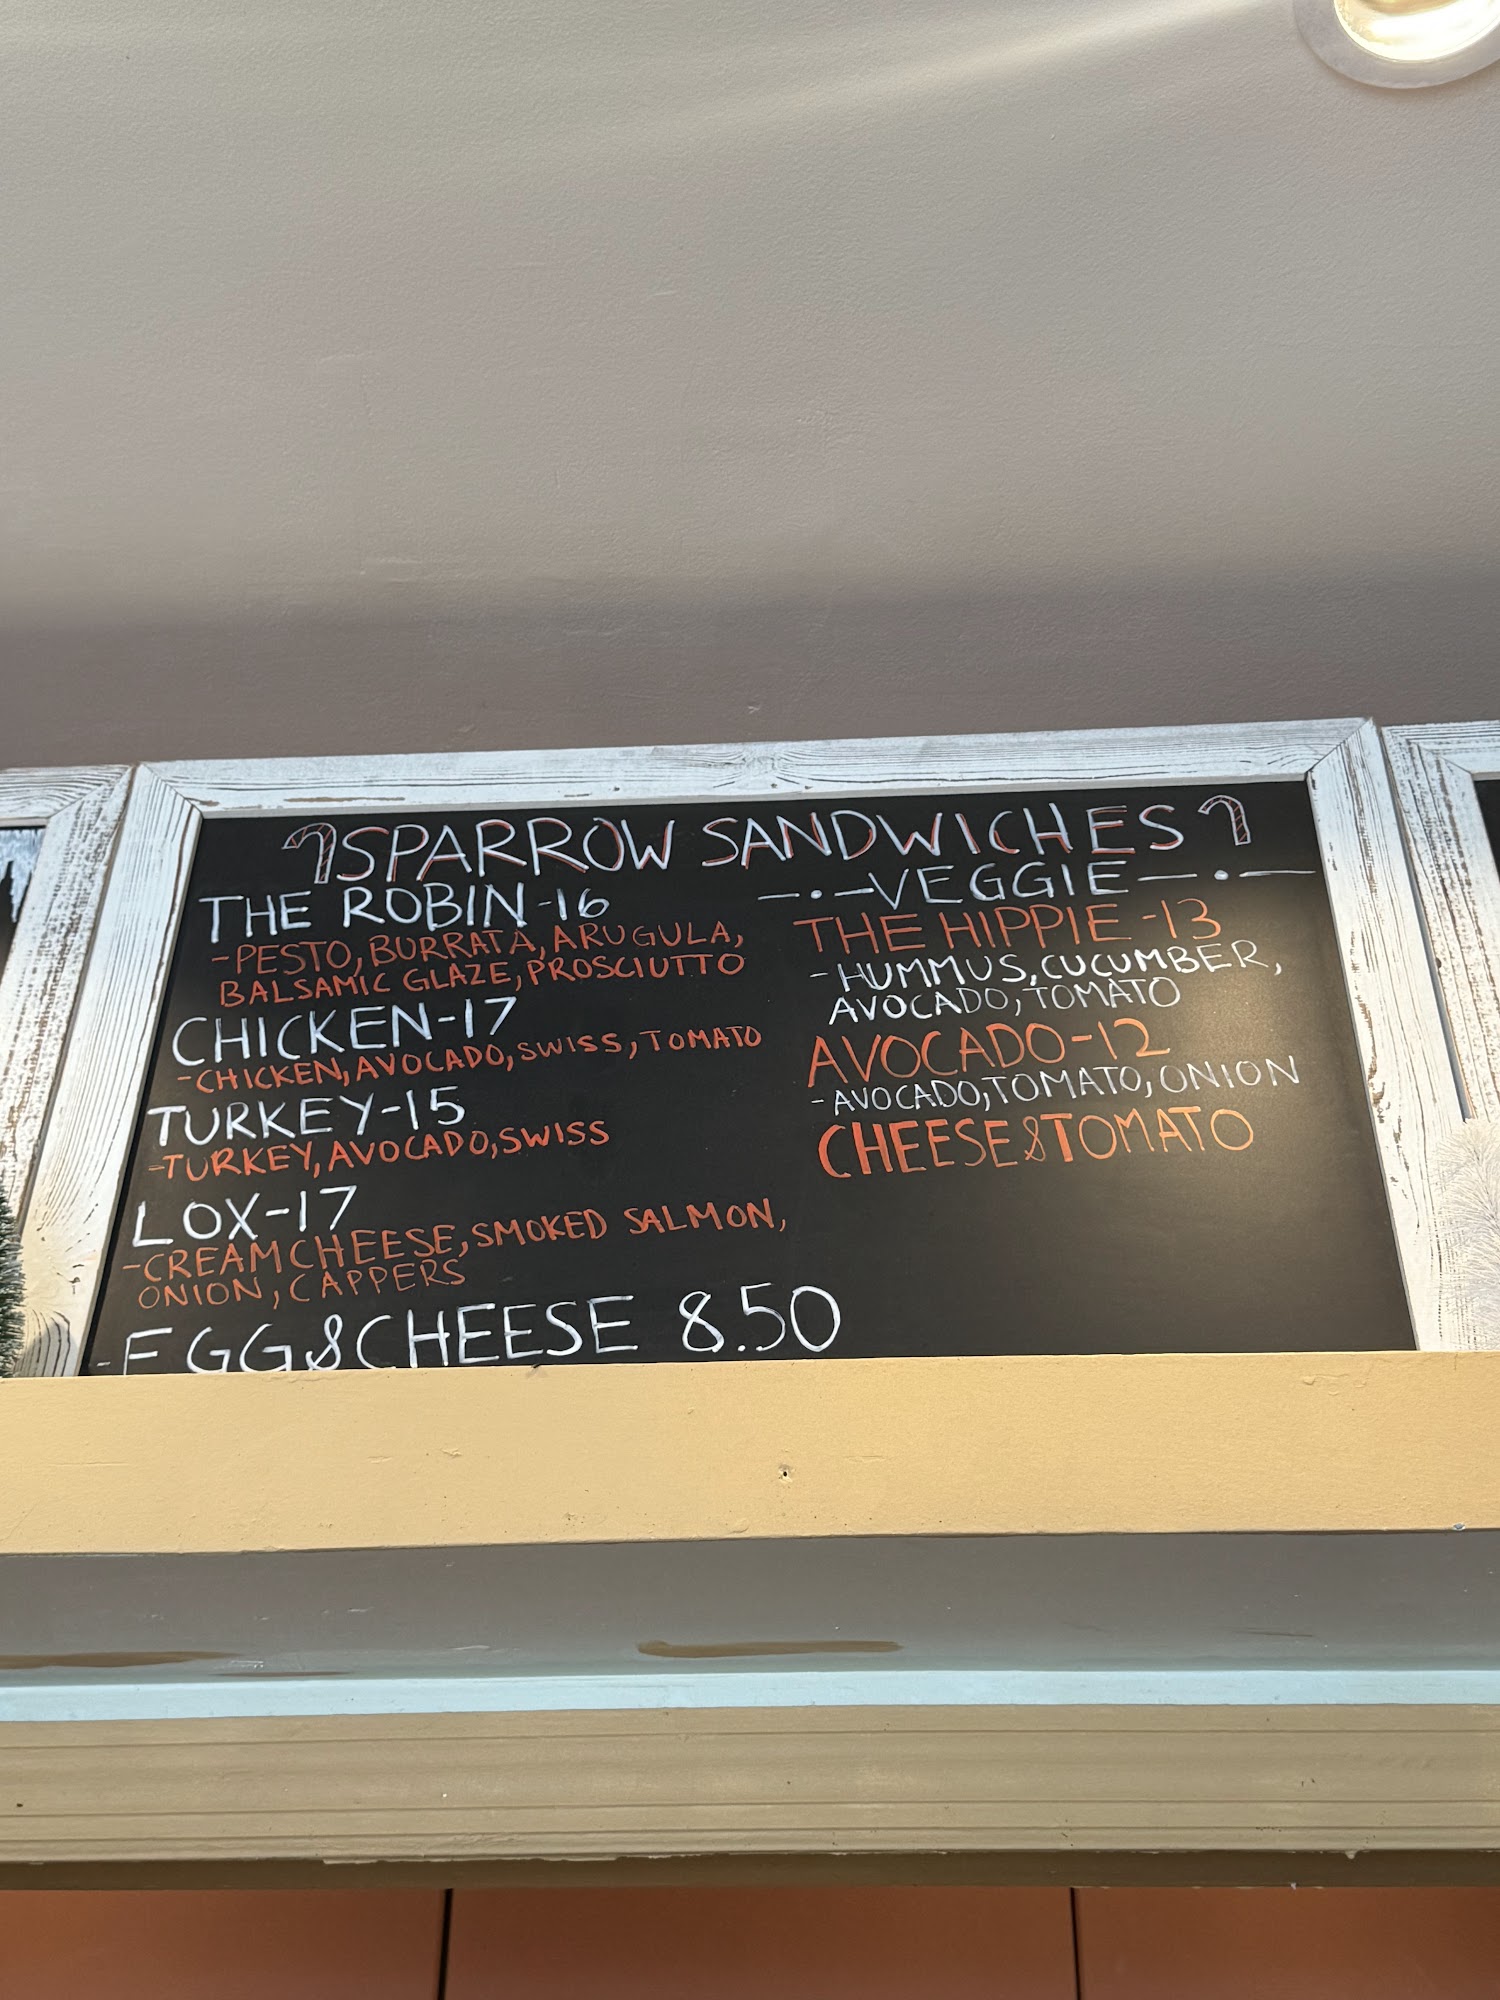 SPARROW SANDWICHES
THE ROBIN-16
-PESTO, BURRATA, ARUGULA,
BALSAMIC GLAZE, PROSCIUTTO
CHICKEN-17
-CHICKEN, AVOCADO, SWISS, TOMATO
TURKEY-15
-TURKEY, AVOCADO, SWISS
LOX-17
-CREAM CHEESE, SMOKED SALMON,
ONION, CAPPERS
-EGG&CHEESE 8.50
—·—VEGGIE—·—
THE HIPPIE -13
-HUMMUS, CUCUMBER,
AVOCADO, TOMATO
AVOCADO-12
-AVOCADO, TOMATO, ONION
CHEESE&TOMATO